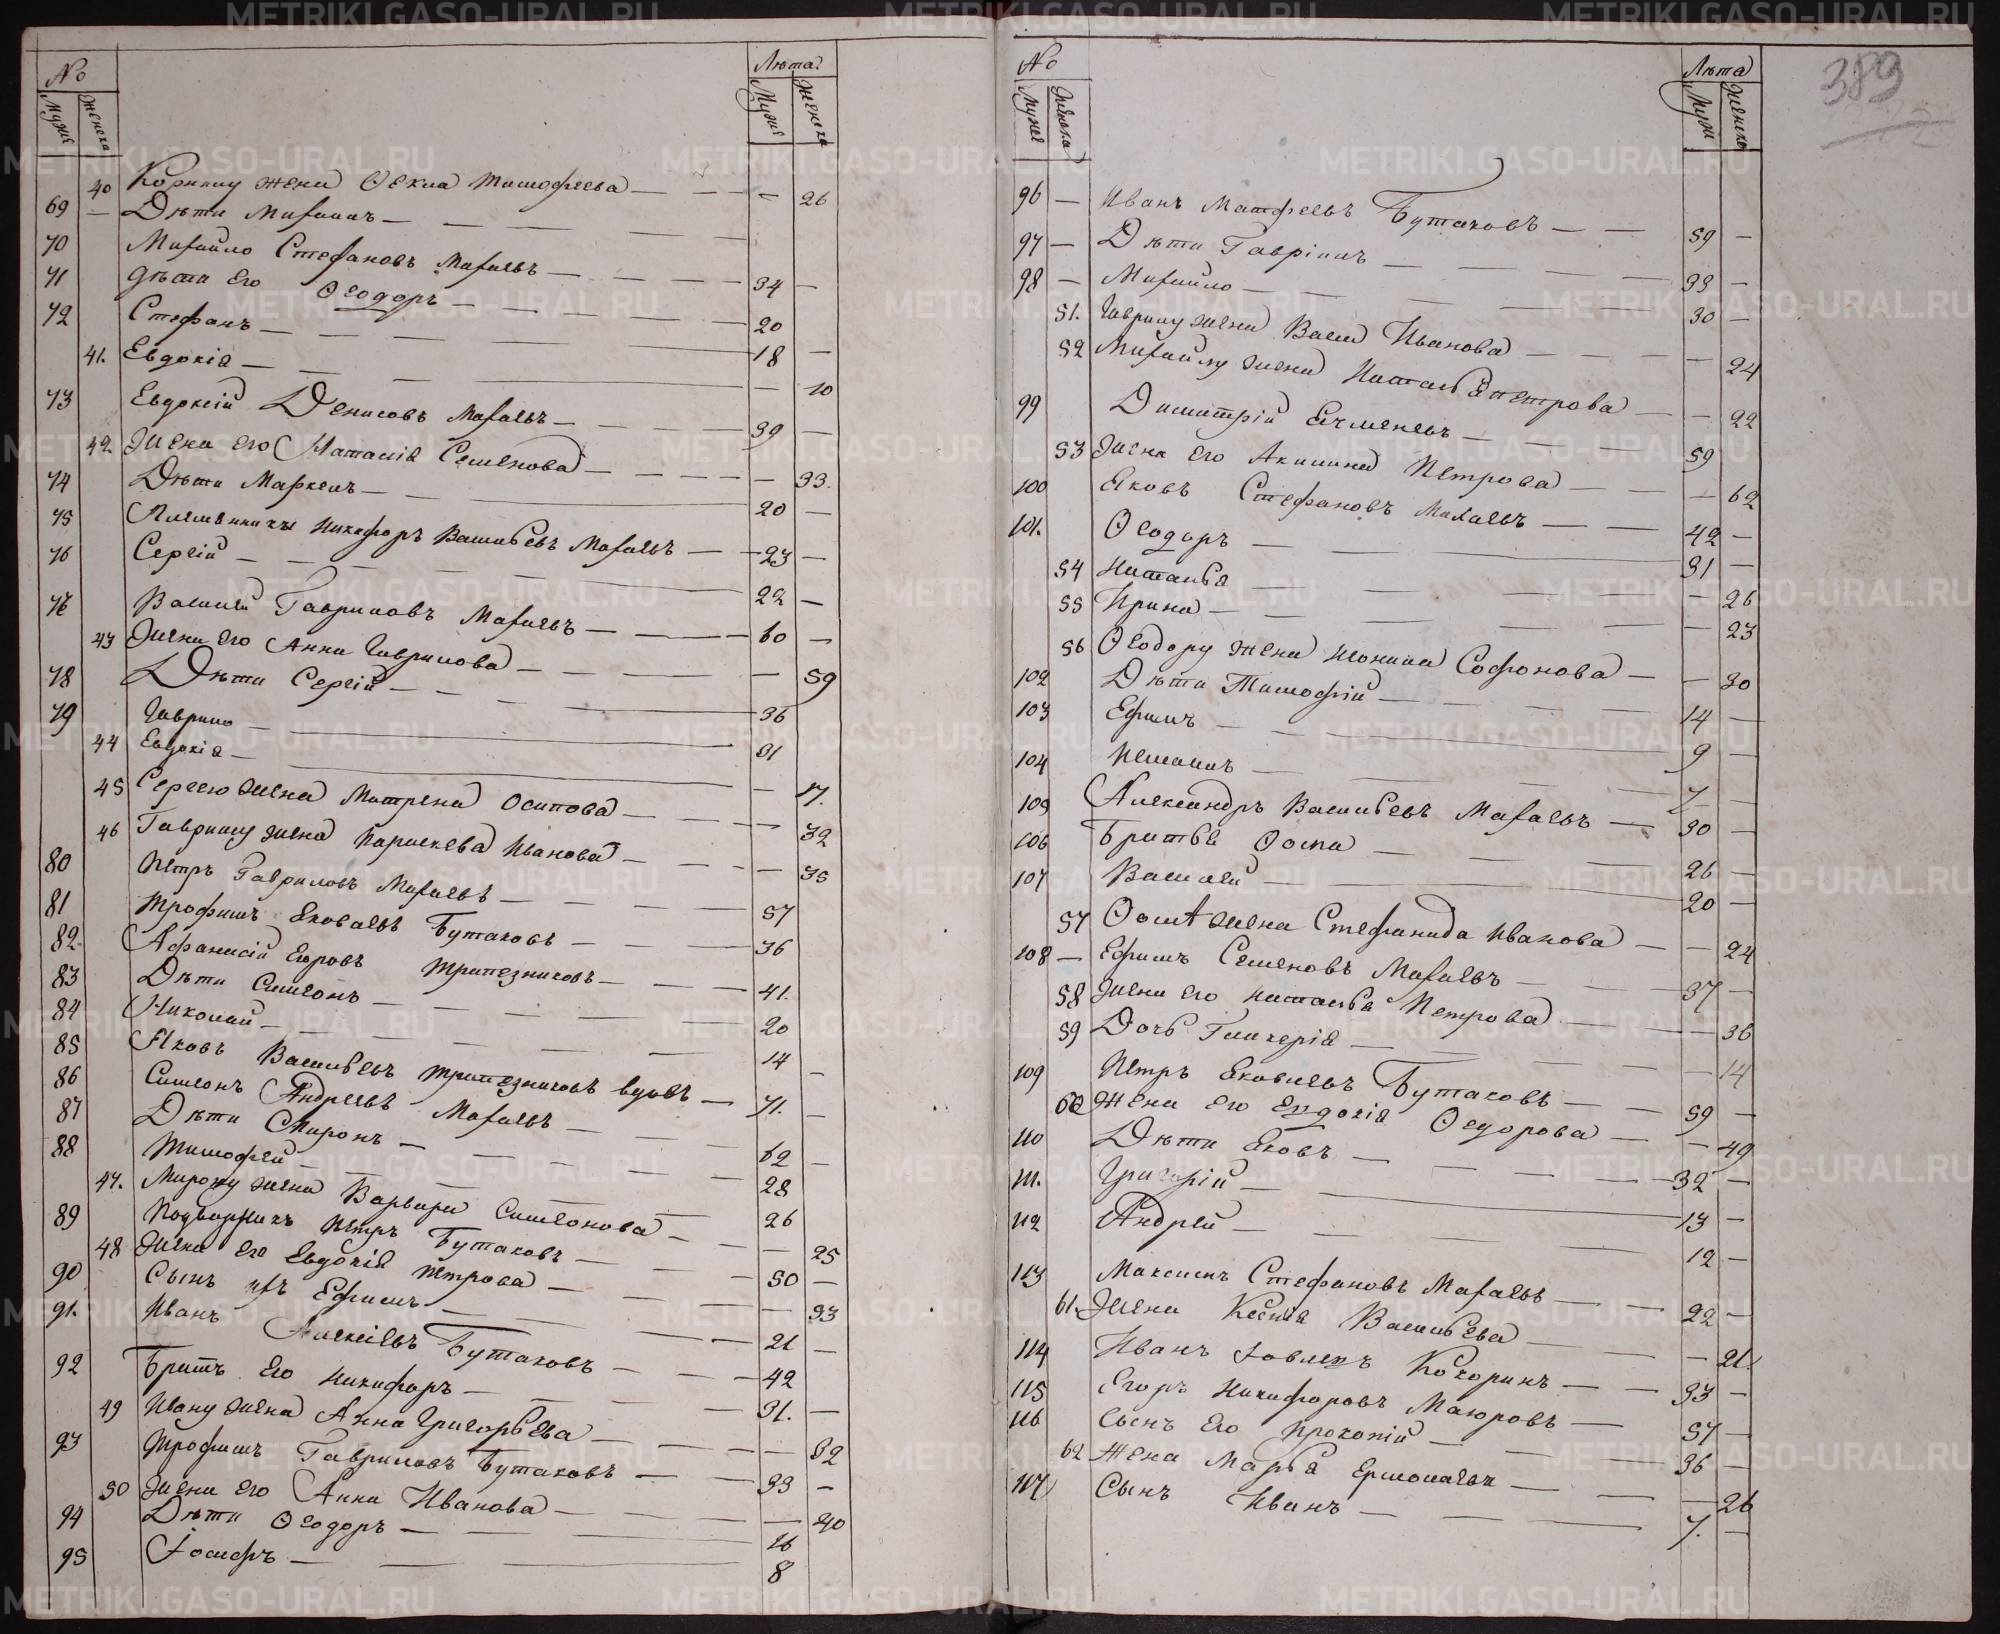 № Лѣта
Мужс Женска Мужс Женска
40 Корнилу жена Ѳекла Тимофеева — — 26
69 — Дѣти Михаилъ —
70 Михайло Стефановъ Махаевъ — 34 —
71 Дѣти Его Ѳеодоръ — 20
72 Стефанъ — 18 —
41. Евдокія — — 10
73 Евдокей Денисовъ Махаевъ — 39 —
42 Жена Его Наталія Семенова — — 33.
74 Дѣти Маркелъ — 20 —
75 Племянники Никифоръ Васильевъ Махаевъ — 23 —
76 Сергій — 22 —
77 Василей Гавриловъ Махаевъ — 60 —
43 Жена его Анна Гаврилова — — 59
78 Дѣти Сергій — 36
79 Гаврило — 31
44 Евдокія — — 17.
45 Сергею жена Матрена Осипова — — 32
46 Гаврилу жена Параскева Иванова — — 35
80 Петръ Гавриловъ Махаевъ — 57
81 Трофимъ Яковлевъ Бутаковъ — 36
82 Афанасій Егоровъ Трапезниковъ — 41.
83 Дѣти Симеонъ — 20
84 Николай — 14
85 Яковъ Васильевъ Трапезниковъ вдовъ — 71. —
86 Симеонъ Андреевъ Махаевъ — 62 —
87 Дѣти Миронъ — 28
88 Тимофей — 26
47. Мирону жена Варвара Симеонова — — 25
89 Подворникъ Петръ Бутаковъ — 50 —
48 Жена его Евдокія Петрова — — 33
90 Сынъ ихъ Ефимъ — 21 —
91. Иванъ Алексіевъ Бутаковъ — 42
92 Братъ Его Никифоръ — 31. —
49 Ивану жена Анна Григорьева — — 32
93 Трофимъ Гавриловъ Бутаковъ — 33 —
50 Жена его Анна Иванова — — 40
94 Дѣти Ѳеодоръ — 16
95 Іосифъ — 8
389
№ Лѣта
Мужс Женска Мужс Женска
96 — Иванъ Матфеевъ Бутаковъ — 59 —
97 — Дѣти Гавріилъ — 33 —
98 — Михайло — 30 —
51. Гаврилу жена Васса Иванова — — 24
52 Михайлу жена Наталья Петрова — — 22
99 Димитрій Ячменевъ — 59
53 Жена его Акилина Петрова — — 62
100 Яковъ Стефановъ Махаевъ — 42 —
101. Ѳеодоръ — 31 —
54 Наталья — — 26
55 Ирина — — 23
56 Ѳеодору жена Неонила Софонова — — 30
102 Дѣти Тимофій — 14 —
103 Ефимъ — 9 —
104 — 7 —
105 Александръ Васильевъ Махаевъ — 30 —
106 Братья Ѳома — 26 —
107 Василей — 20 —
57 Ѳомѣ жена Стефанида Иванова — — 24
108 — Ефимъ Семеновъ Махаевъ — 37 —
58 Жена его Наталья Петрова — — 36
59 Дочь Гликерія — — 14
109 Петръ Яковлевъ Бутаковъ — 59 —
60 Жена его Евдокія Ѳедорова — — 49
110 Дѣти Яковъ — 32 —
111. Григорій — 13 —
112 Андрей — 12 —
113 Максимъ Стефановъ Махаевъ — 22 —
61. Жена Ксенія Васильева — — 21.
114 Иванъ Іовлевъ Кокоринъ — 33 —
115 Егоръ Никифоровъ Маюровъ — 57 —
116 Сынъ его Прокопій — 36 —
62 Жена Марья Ермолаева — — 26
117 Сынъ Иванъ — 7. —